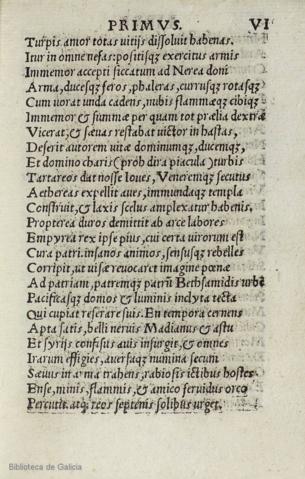 PRIMVS. VI
Turpis amor totas uitijs dissoluit habenas.
Itur in omne nefas: positisq; exercitus armis
Immemor accepti siccatum ad Nerea doni
Arma, ducesq; feros, phaleras, currusq; rotasq;
Cum uorat unda cadens, nubis flammæq; cibiq;
Immemor & summæ per quam tot prælia dextræ
Vicerat, & sæuas restabat uictor in hastas,
Deserit autorem uitæ dominumq;, ducemq;,
Et domino charis (prób dira piacula) turbis
Tartareos dat nosse Ioues, Veneremq; secutus
Aethereas expellit aues, immundaq; templa
Construit, & laxis scelus amplexatur habenis.
Propterea duros demittit ab arce labores
Empyrea rex ipse pius, cui certa uirorum est
Cura patri. insanos animos, sensusq; rebelles
Corripit, ut uisæ reuocaret imagine pœnæ
Ad patriam, patremq; patrũ Bethsamidis urbẽ
Pacificasq; domos & luminis inclyta tecta
Qui cupiat reserare suis. En tempora cernens
Apta satis, belli neruis Madianus & astu
Et syrijs confisus auis insurgit, & omnes
Irarum effigies, auersaq; numina secum
Sæuus in arma trahens, rabiosis ictibus hostes
Ense, minis, flammis, & amico feruidus orco
Percutit. atq; reos septenis solibus urget.
Biblioteca de Galicia